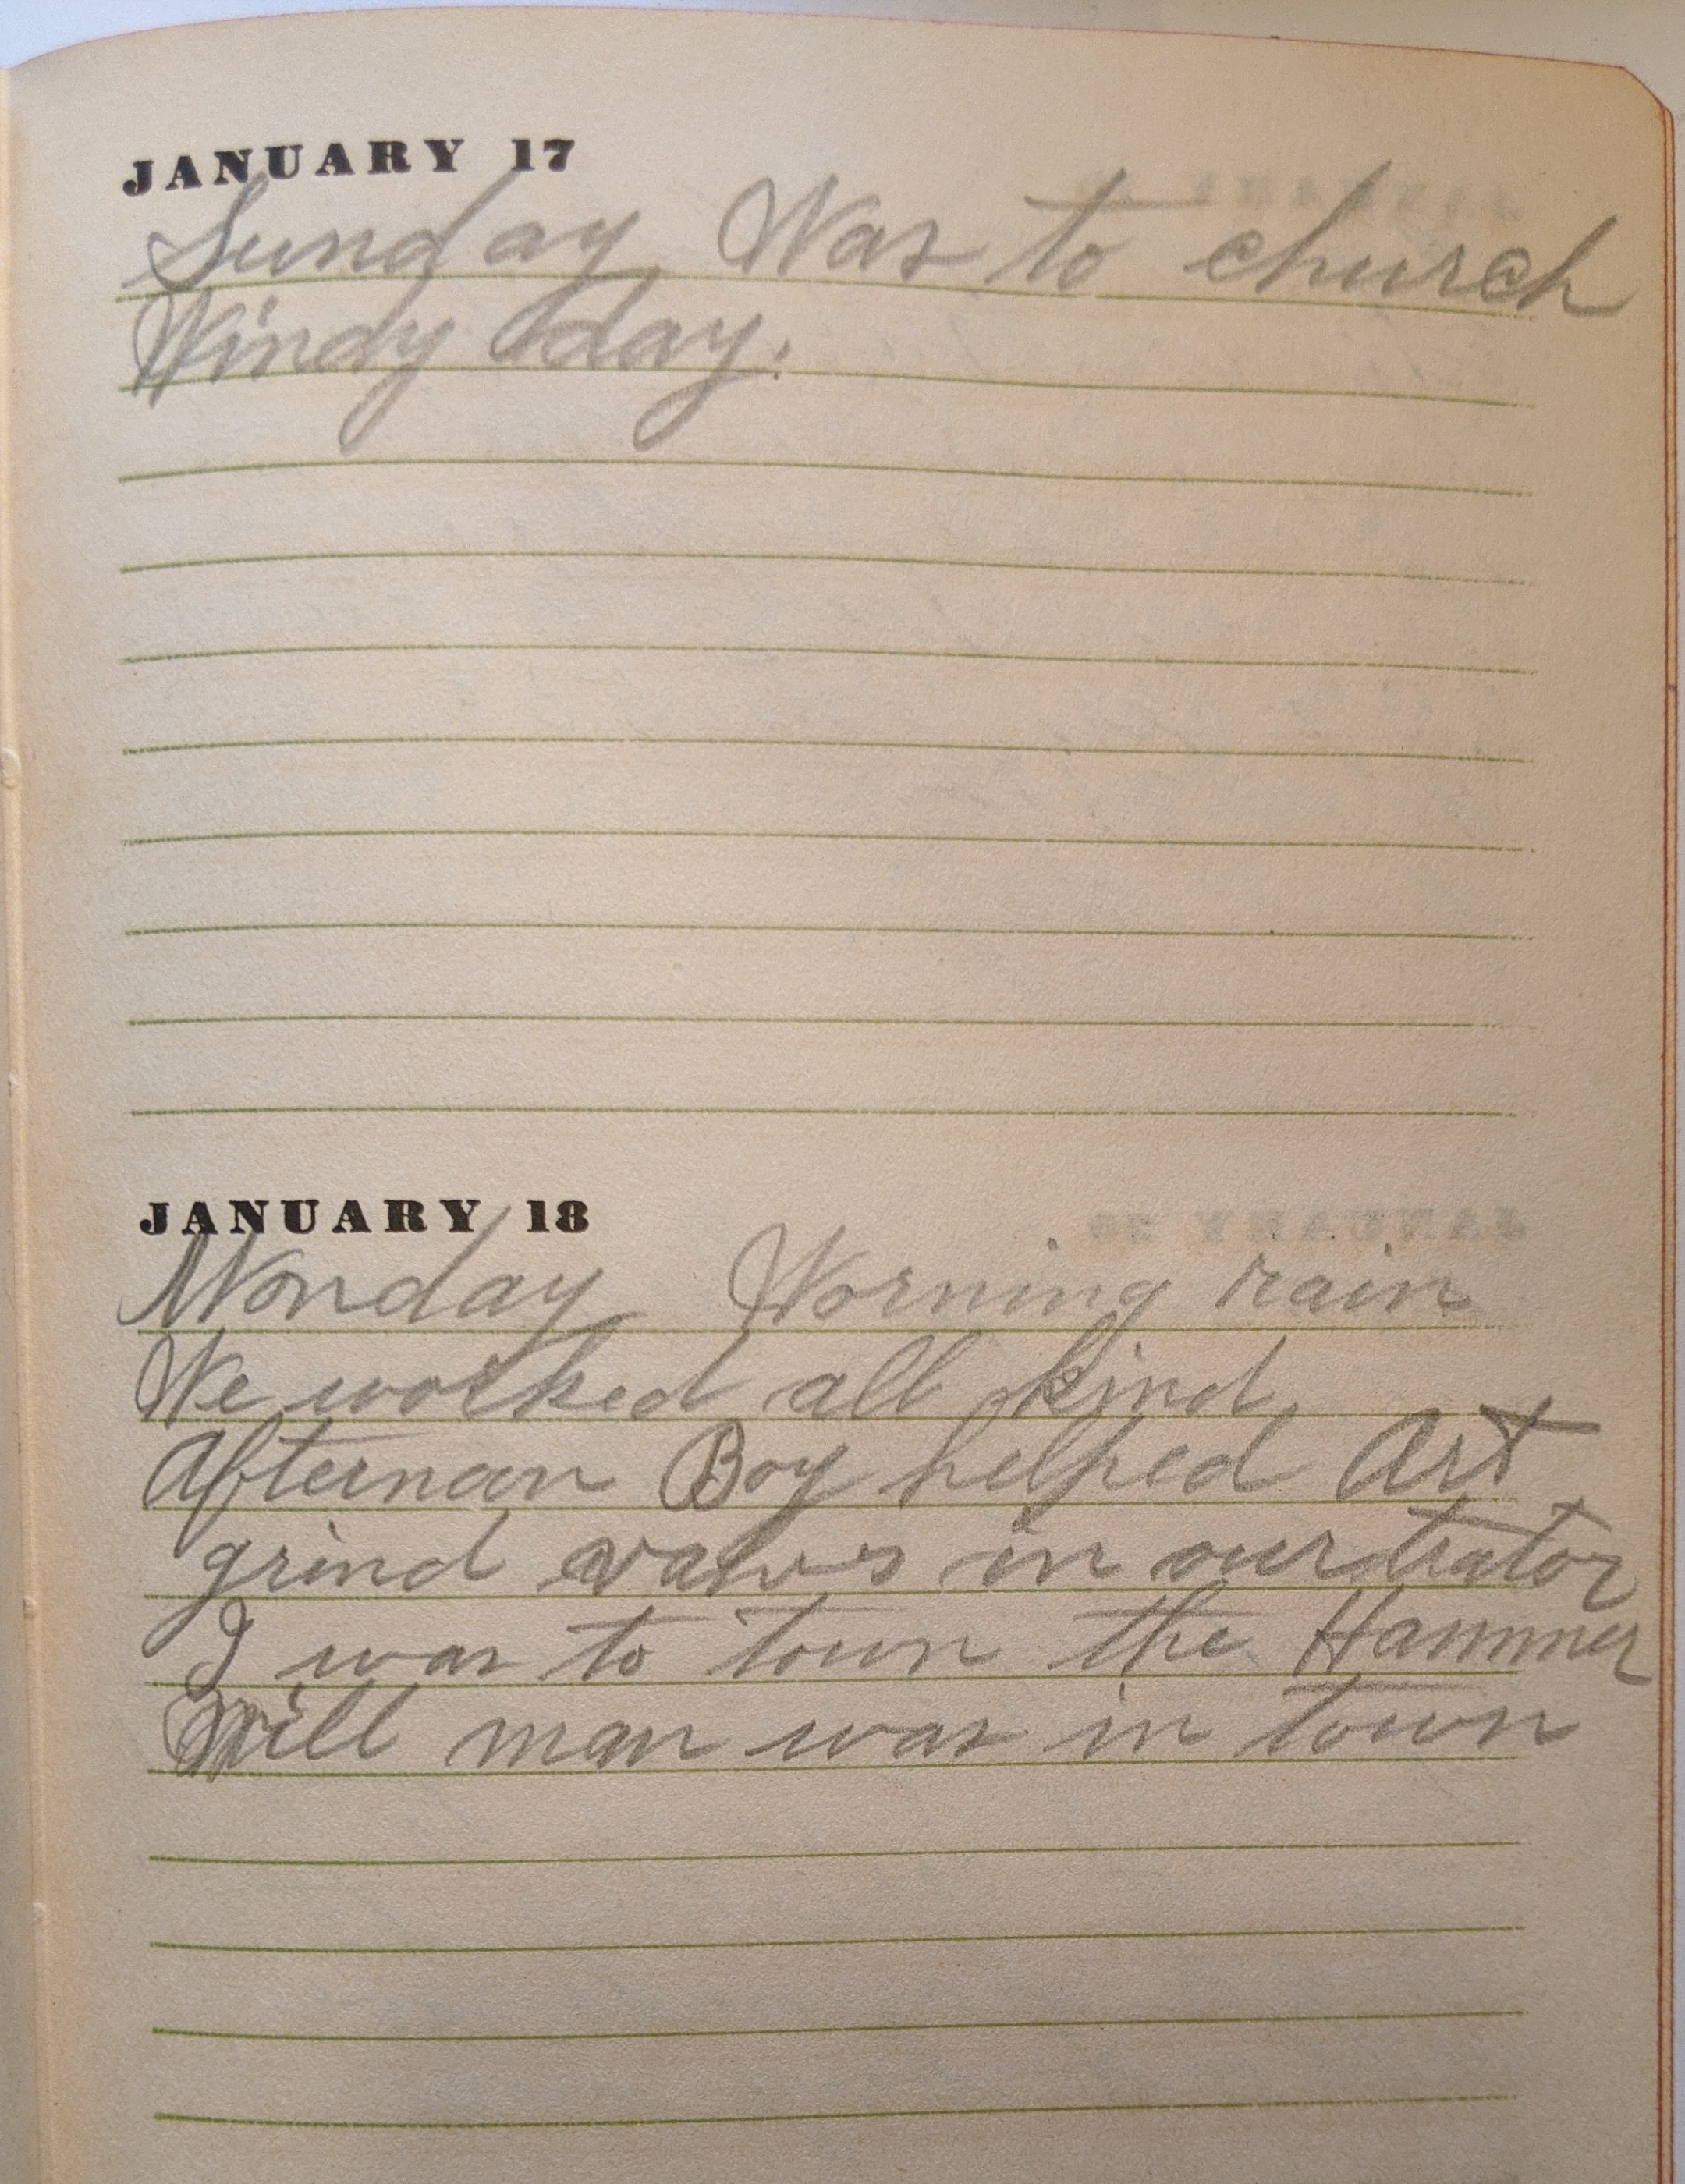 JANUARY 17
Sunday Was to church
Windy day.
JANUARY 18
Monday Morning rain
We worked all kind
Afternoon Boy helped Art
grind valves in our trator
I was to town the Hammer
Mill man was in town